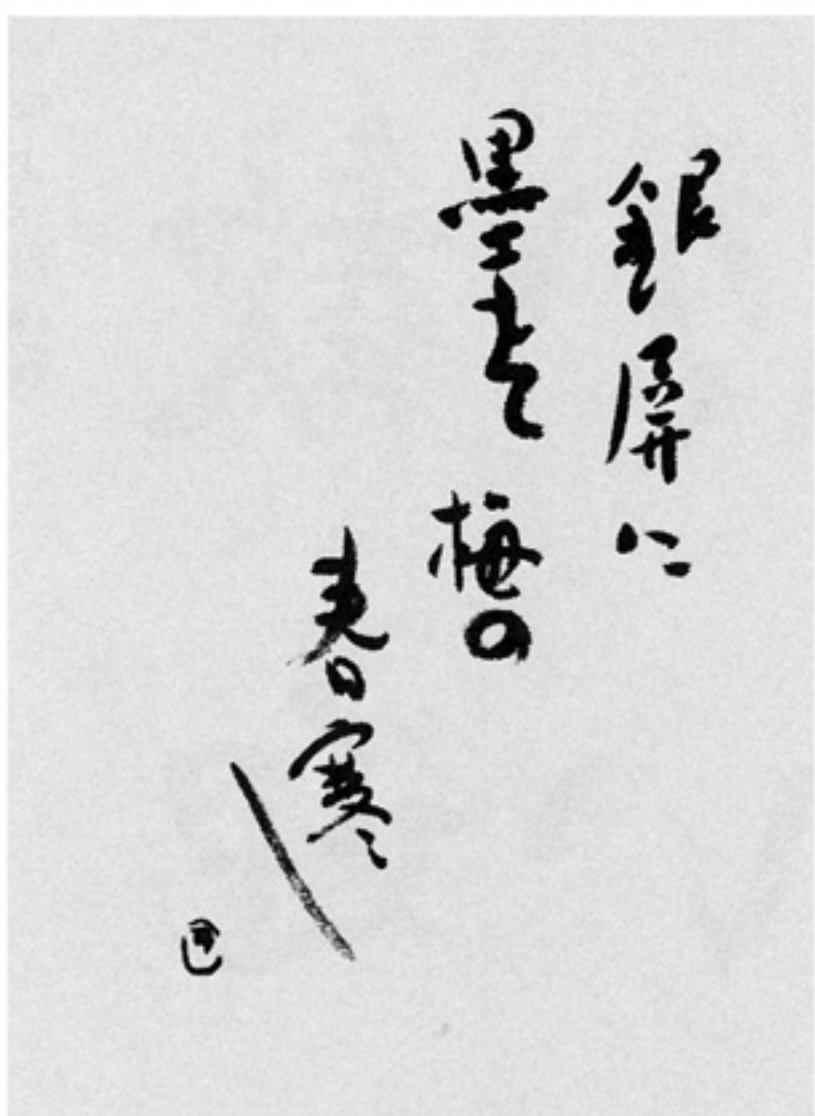 銀屏に
墨老梅の
春寒し